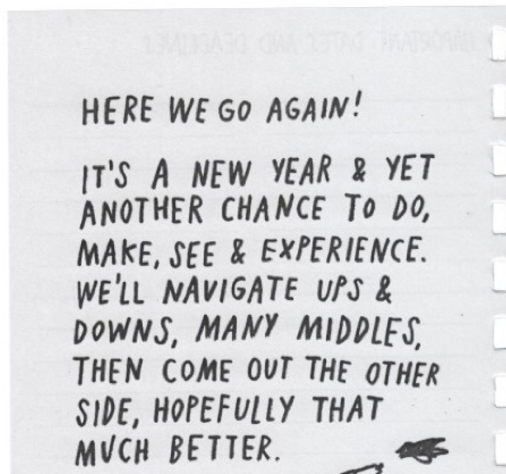 IMPORTANT DATES AND DEADLINES
HERE WE GO AGAIN!
IT'S A NEW YEAR & YET
ANOTHER CHANCE TO DO,
MAKE, SEE & EXPERIENCE.
WE'LL NAVIGATE UPS &
DOWNS, MANY MIDDLES,
THEN COME OUT THE OTHER
SIDE, HOPEFULLY THAT
MUCH BETTER.